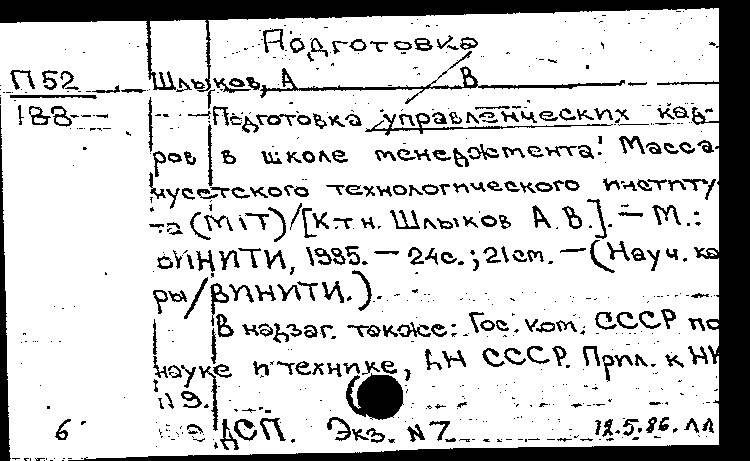 Подготовка
П52 Шлыков, А В
188 Подготовка управленческих кад-
ров в школе менеджмента Масса-
чусетского технологического институ-
та (MIT)/[К.т.н. Шлыков А.В.]. — М.:
ВИНИТИ, 1985. — 24с.; 21см. — (Науч. ка
ры/ВИНИТИ.).
В надзаг. также: Гос. ком. СССР по
науке и технике, АН СССР. Прил. к НК
N9.
6 ДСП. Экз. N 7 12.5.86. ЛЛ